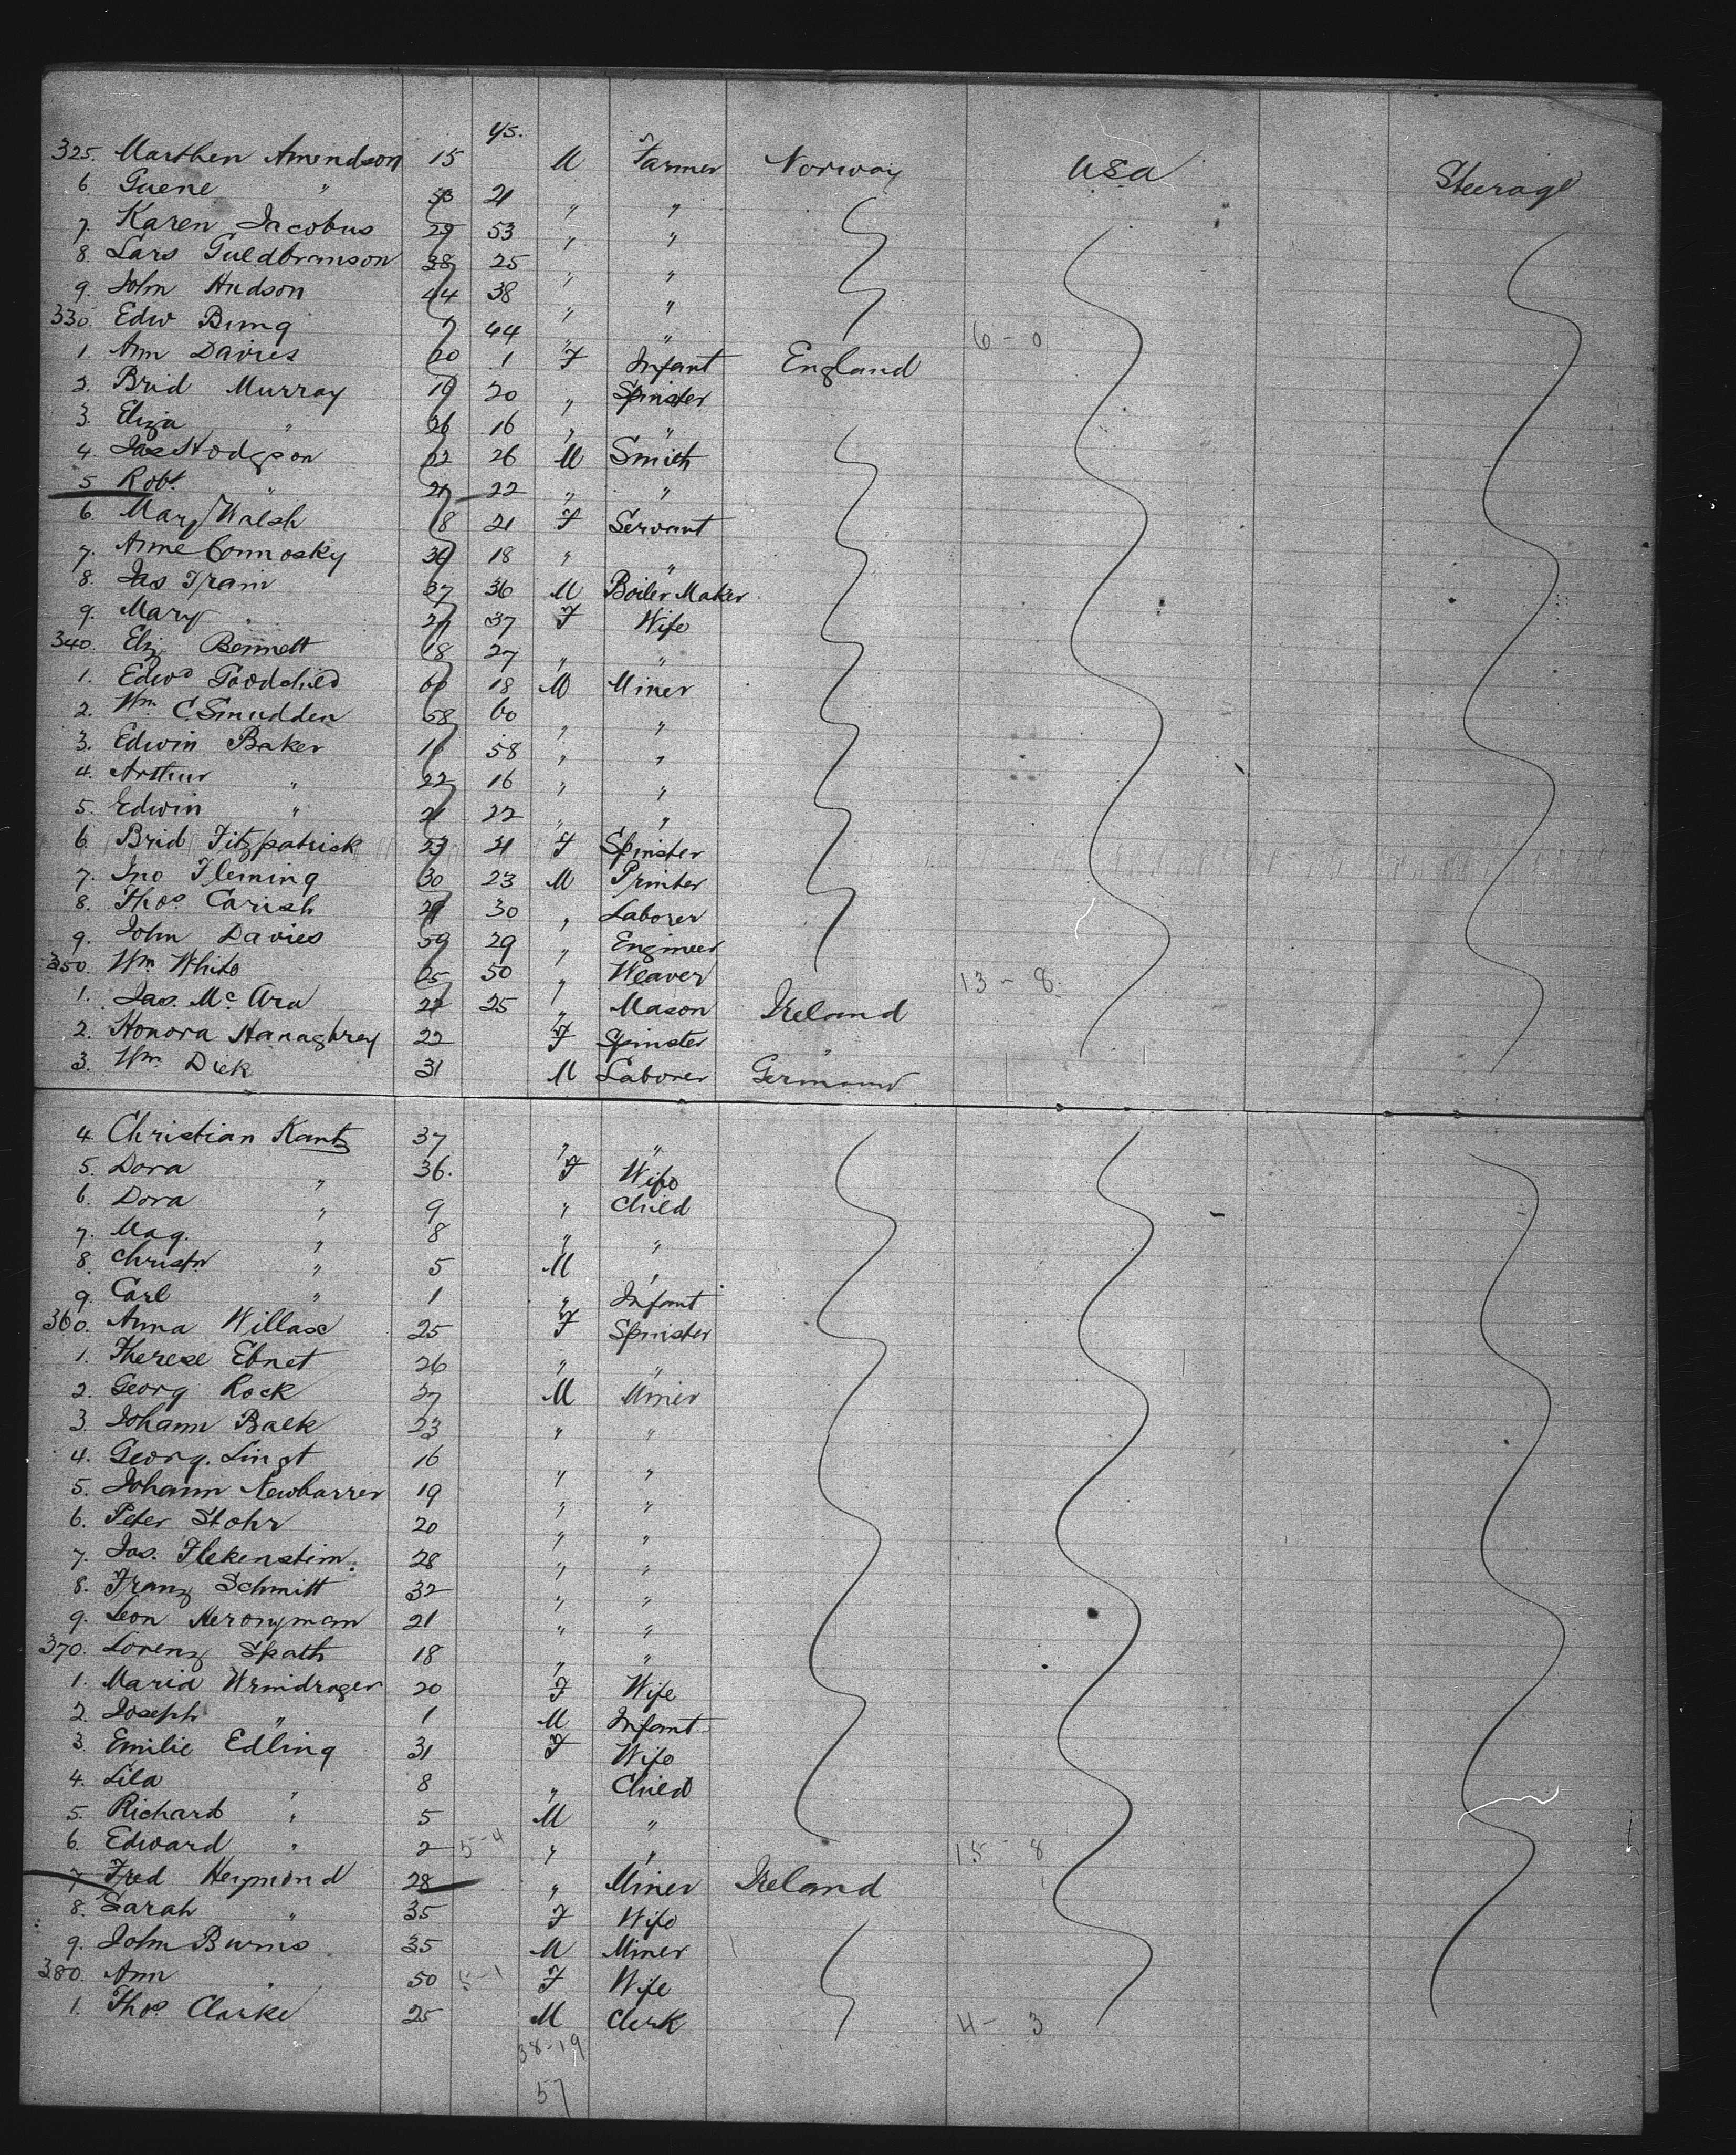 325. Marthen Amendson 15 y/s. M Farmer Norway USA Steerage
6 Guene " 53 21 " "
7. Karen Jacobus 29 53 " "
8. Lars Guldbranson 38 25 " "
9. John Hudson 44 38 " "
330. Edw Bung 44 " " 6-0
1. Ann Davies 20 1 F Infant England
2. Brid Murray 16 20 " Spinster
3. Eliza " 26 16 " "
4. Jas Hodgson 22 26 M Smith
5 Robt. " 21 22 " "
6. Mary Walsh 18 21 F Servant
7. Anne Connosky 36 18 " "
8. Jas Train 37 36 M Boiler Maker
9. Mary " 27 37 F Wife
340. Eliz Bennett 18 27 " "
1. Edwd Goodchild 60 18 M Miner
2. Wm C. Smudden 58 60 " "
3. Edwin Baker 16 58 " "
4. Arthur " 22 16 " "
5. Edwin " 21 22 " "
6 Brid Fitzpatrick 23 21 F Spinster
7. Jno Fleming 30 23 M Printer
8. Thos Carish 29 30 " Laborer
9. John Davies 59 29 " Engineer
350. Wm. White 25 50 " Weaver 13-8
1. Jas. Mc Ara 22 25 " Mason Ireland
2. Honora Hanaghrey 22 F Spinster "
3. Wm. Dick 31 M Laborer Germany
4. Christian Kantz 37 " "
5. Dora " 36. F Wife
6. Dora " 9 " Child
7. Mag. " 8 " "
8. Christn " 5 M "
9. Carl " 1 " Infant
360. Anna Willax 25 F Spinster
1. Therese Ebnet 26 " "
2. Georg Rock 27 M Miner
3. Johann Back 23 " "
4. Georg. Lingt 16 " "
5. Johann Newbarrer 19 " "
6. Peter Stohr 20 " "
7. Jos. Flekenstim. 28 " "
8. Franz Schmitt 32 " "
9. Leon Meronymam 21 " "
370. Lorenz Spath 18 " "
1. Maria Wrmidrager 20 F Wife
2. Joseph " 1 M Infant
3. Emilie Edling 31 F Wife
4. Lila " 8 " Child
5. Richard " 5 M "
6. Edward " 2 5-4 " " 15-8
7 Fred Heymond 28 " Miner Ireland
8. Sarah " 35 F Wife
9. John Burns 35 M Miner
380. Ann " 50 5-1 F Wife
1. Thos. Clarke 25 M Clerk 4-3
38-19
57